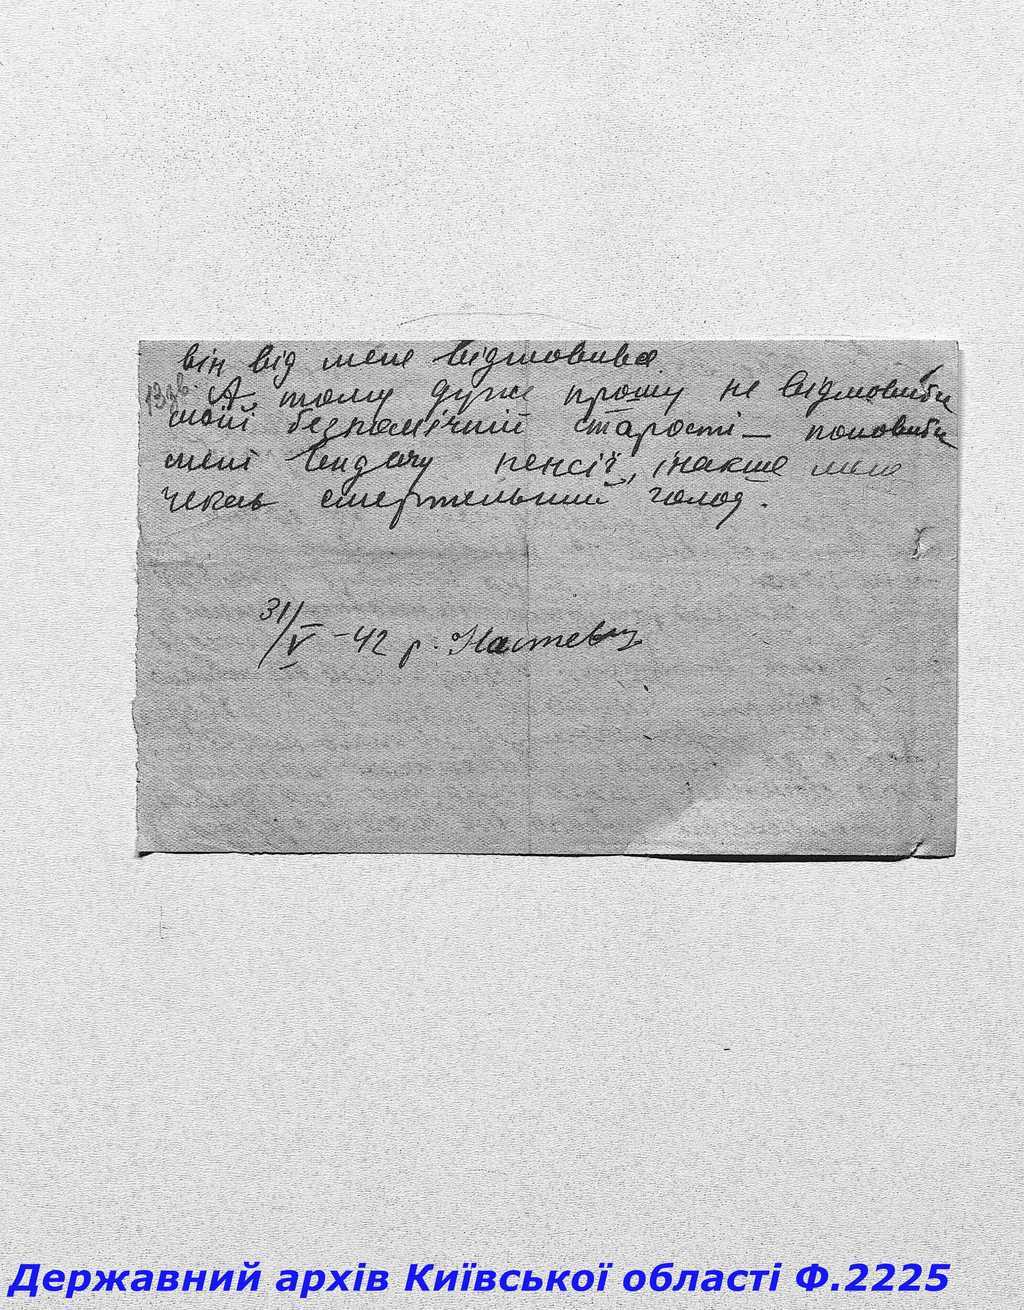 він від мене відмовився.
13 зв.
А тому дуже прошу не відмовити
моїй безпомічній старості — поновити
мені видачу пенсії, інакше мене
чекає смертельний голод.
31/V -42 р.
Державний архів Київської області Ф.2225